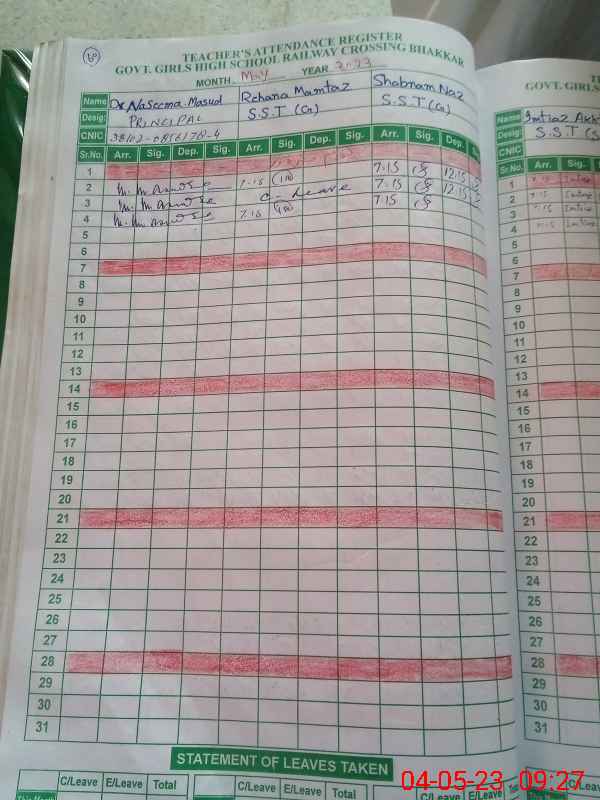 60
TEACHER'S ATTENDANCE REGISTER
GOVT. GIRLS HIGH SCHOOL RAILWAY CROSSING BHAKKAR
MONTH. May YEAR 2023
Name Dr Naseema Masud Rehana Mamtaz Shabnam Naz
Desig: PRINCIPAL S.S.T (G) S.S.T (G)
CNIC
Sr.No. Arr. Sig. Dep. Sig. Arr. Sig. Dep. Sig. Arr. Sig. Dep.
1
2 7:15 7:15 12:15
3 C - Leave 7:15 12:15
4 7:15 7:15
5
6
7
8
9
10
11
12
13
14
15
16
17
18
19
20
21
22
23
24
25
26
27
28
29
30
31
STATEMENT OF LEAVES TAKEN
C/Leave E/Leave Total C/Leave E/Leave Total C/Leave E/Leave
GOVT. GIRLS
Name Imtiaz
Desig: S.S.T
CNIC
Sr.No. Arr. Sig.
1 7:15
2 7:15
3 7:15
4
5
6
7
8
9
10
11
12
13
14
15
16
17
18
19
20
21
22
23
24
25
26
27
28
29
30
31
C/Leave
04-05-23 09:27